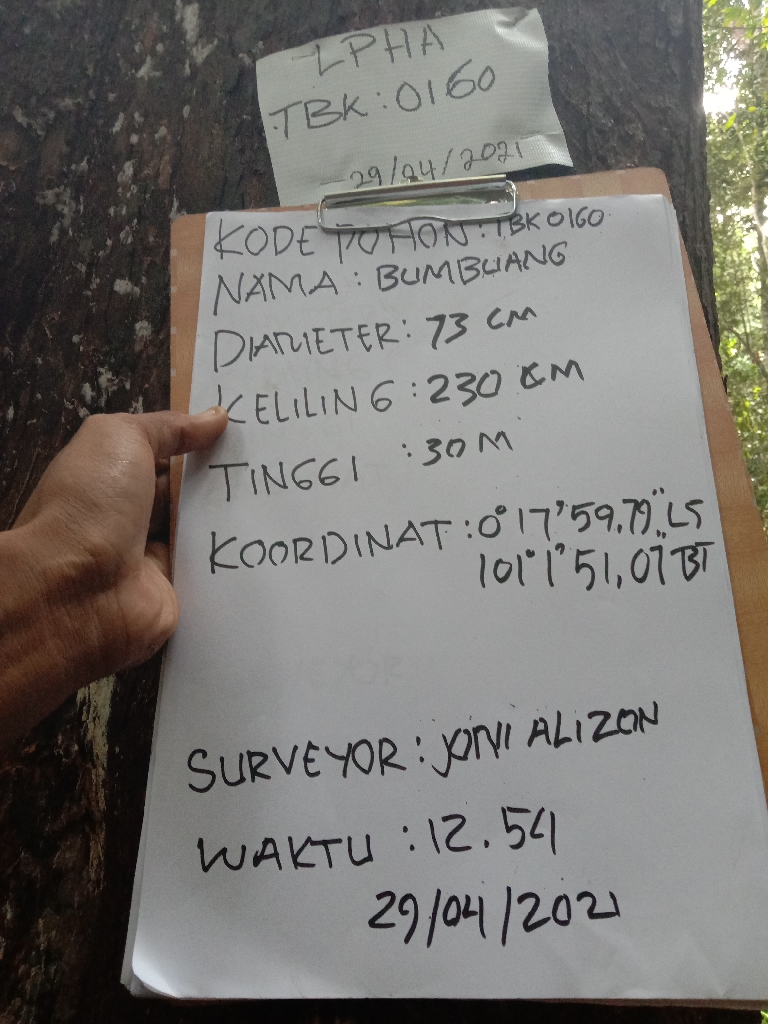 LPHA
TBK : 0160
29/04/2021
KODE POHON : TBK 0160
NAMA : BUMBUANG
DIAMETER : 73 CM
KELILING : 230 CM
TINGGI : 30 M
KOORDINAT : 0° 17' 59,79" LS
101° 1' 51,07" BT
SURVEYOR : JONI ALIZON
WAKTU : 12.54
29/04/2021